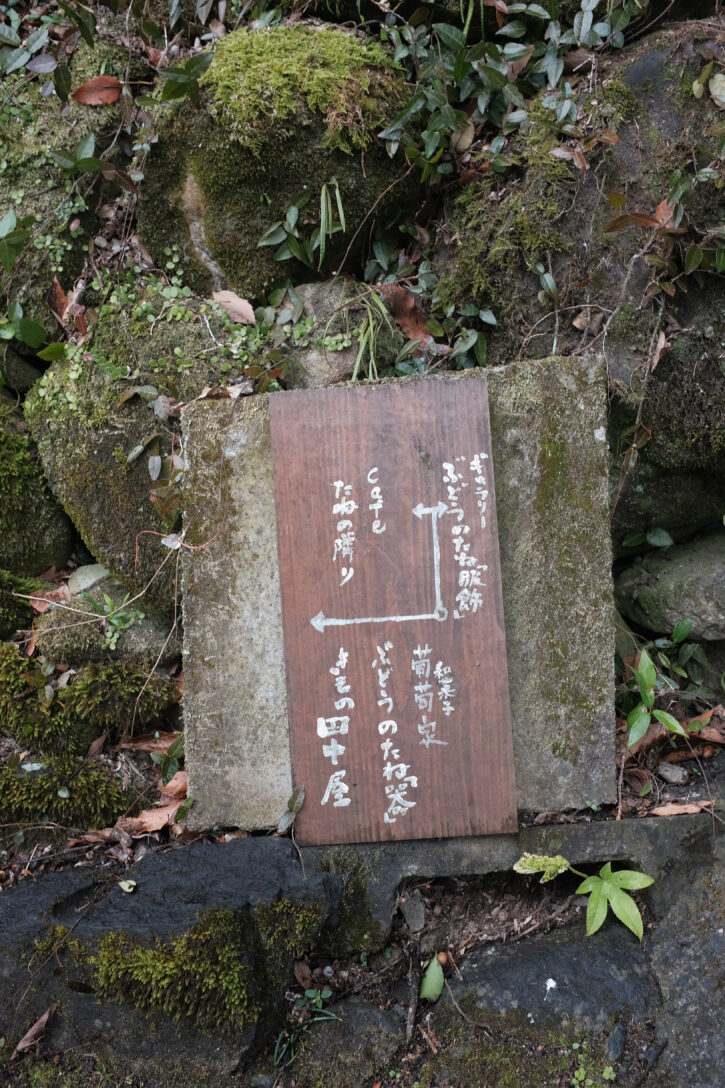 ギャラリー
ぶどうのたね「服飾」
cafe
たねの隣り
和菓子
葡萄家
ぶどうのたね「器」
きもの田中屋